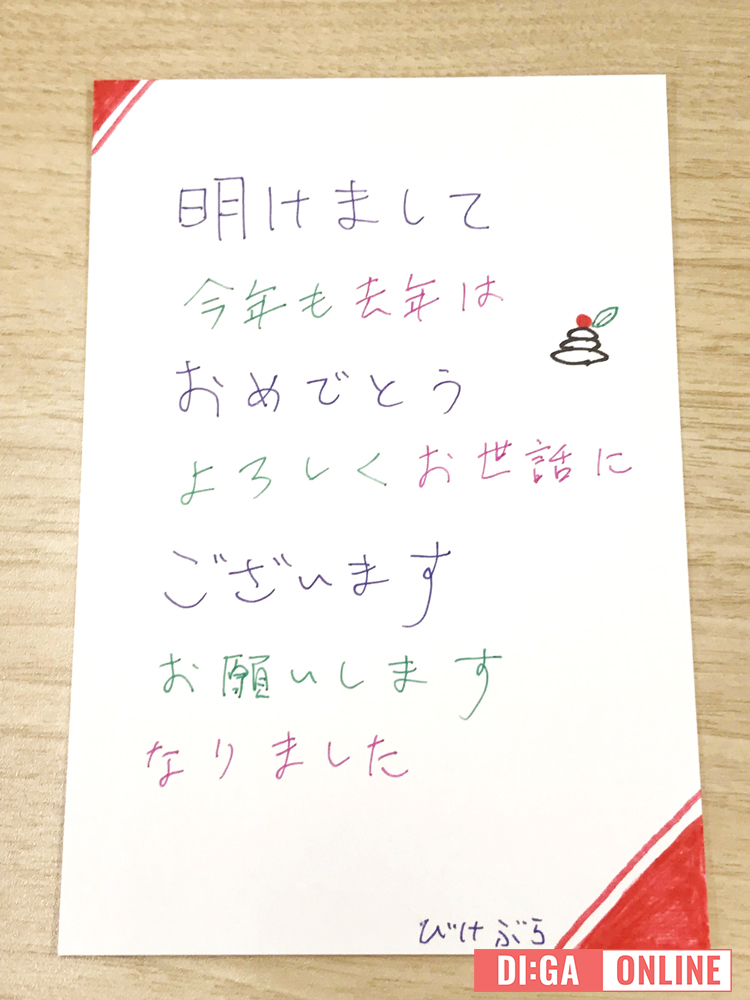 明けまして
今年も去年は
おめでとう
よろしくお世話に
ございます
お願いします
なりました
びけぶら
DI:GA ONLINE